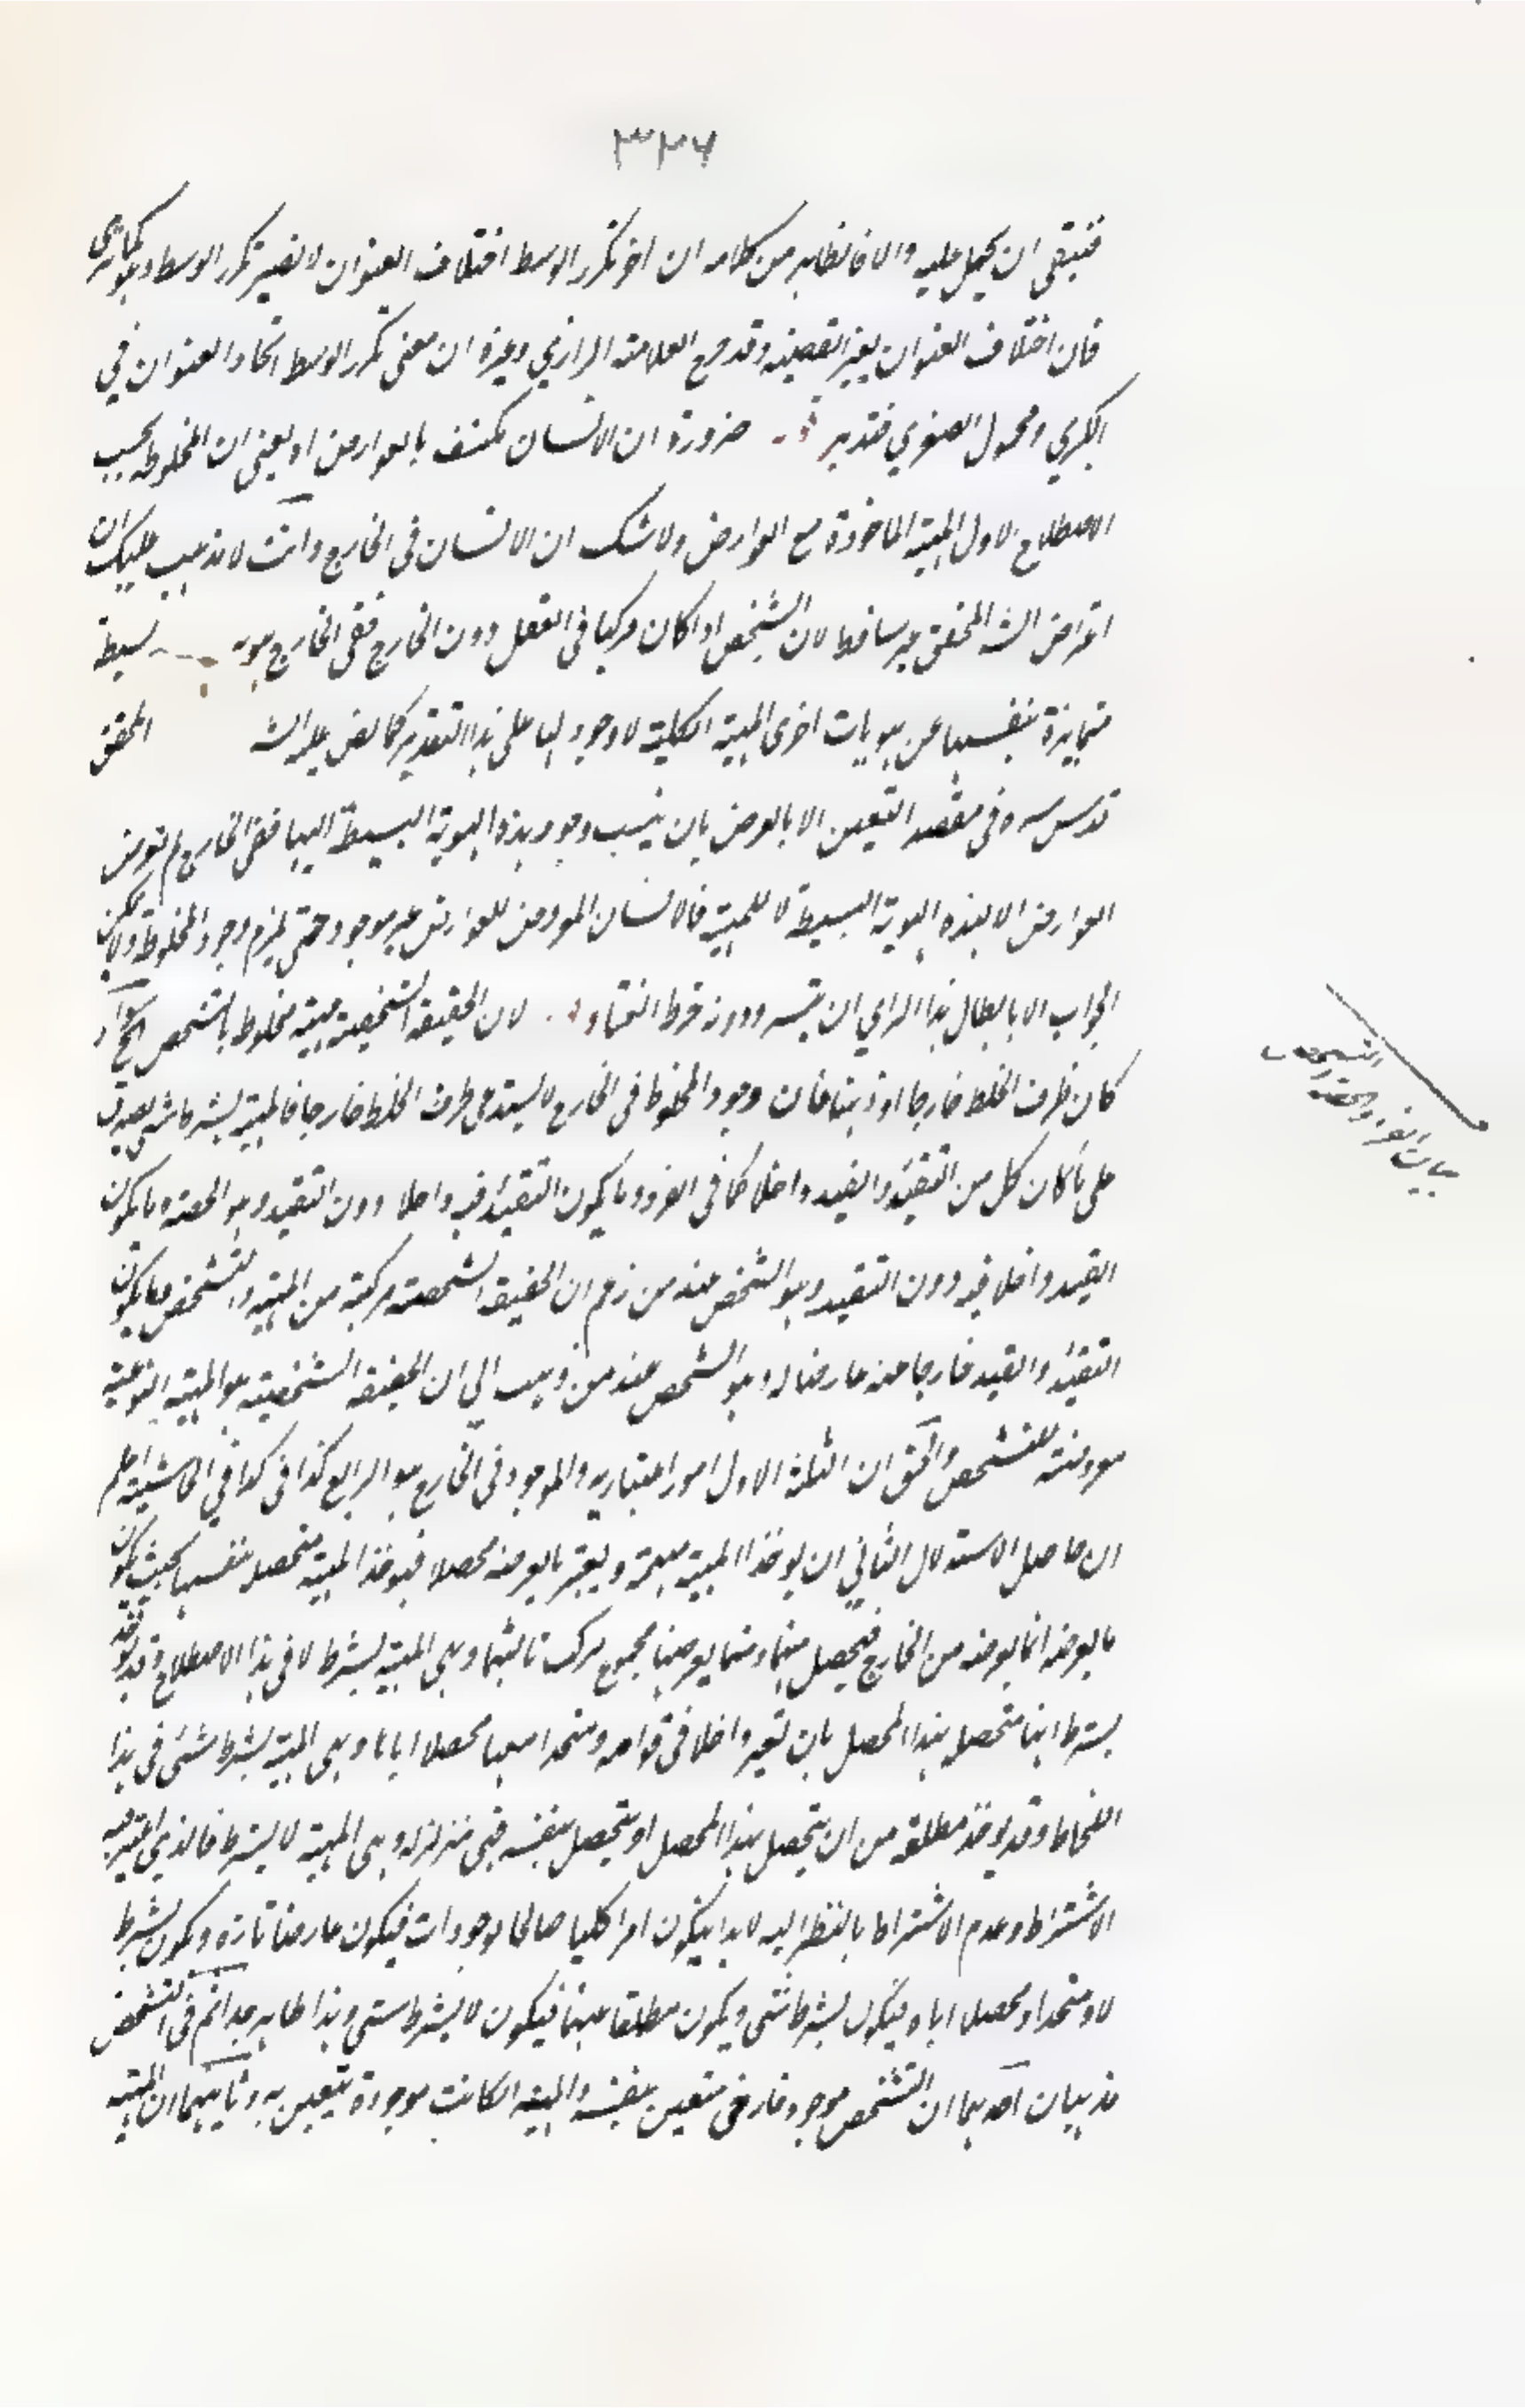 ٣٢٦
فينبغي ان يحمل عليه والا فالظاهر من كلامه ان اخر تكرر الوسط اختلاف العنوان لا يضر تكرر الوسط وهو كما ترى
فان اختلاف العنوان يغير القضية وقد صرح العلامة الرازي وغيره ان معنى تكرر الوسط اتحاد العنوان في
الكبرى ومحمول الصغرى فتدبر ضرورة ان الانسان مكتنف بالعوارض اه يعني ان المخلوطة بحسب
الاصطلاح الاول المهية الماخوذة مع العوارض ولا شك ان الانسان في الخارج وانت لا يذهب عليك ان
اعتراض الشه المحقق غير ساقط لان الشخص اذا كان مركبا في العقل دون الخارج ففي الخارج هوية بسيطة
متمايزة بنفسها عن هويات اخرى المهية الكلية لا وجود لها على هذا التقدير كما نص عليه الشه المحقق
قدس سره في مقصد التعين الا بالعرض بان ينسب وجود هذه الهوية البسيطة اليها ففي الخارج لم تعرض
العوارض الا لهذه الهوية البسيطة لا للمهية فالانسان المعروض للعوارض غير موجود حتى يلزم وجود المخلوطة ولا يمكن
الجواب الا بابطال هذا الراي ان تيسر ودونه خرط القتاد لان الحقيقة الشخصية مهية مخلوط بالتشخص الخ سواء
كان ظرف الخلط خارجا او ذهنا فان وجود المخلوط في الخارج لا يستدعي ظرف الخلط خارجا فالمهية بشرط شئ يصدق
على ما كان كل من التقييد والقيد داخلا كما في الفرد وما يكون التقييد فيه داخلا دون القيد وهو الحصة وما يكون
القيد داخلا فيه دون التقييد وهو الشخص عند من زعم ان الحقيقة الشخصية مركبة من المهية والتشخص وما يكون
التقييد والقيد خارجا عنه عارضا له وهو الشخص عند من ذهب الى ان الحقيقة الشخصية هو المهية النوعية
معروضة للتشخص والحق ان الثلثة الاول امور اعتبارية والموجود في الخارج هو الرابع كذا في الحاشية اعلم
ان حاصل الاستدلال الثاني ان يوخذ المهية مبهمة ويعتبر ما يعرضه محصلا فيوخذ المهية متحصلة بنفسها بحيث يكون
ما يعرضه انما يعرضه من الخارج فيحصل منها ومما يعرضها مجموع مركب ثالثهما وهي المهية بشرط لا في هذا الاصطلاح وقد يوخذ
بشرط انها متحصلة بهذا المحصل بان تعتبر داخلا في قوامه ومتحدا معها محصلا اياها وهي المهية بشرط شئ في هذا
اللحاظ وقد يوخذ مطلقة من ان يتحصل بهذا المحصل او يتحصل بنفسه وهي المهية لا بشرط فالذي اعتبر فيه
الاشتراط وعدم الاشتراط بالنظر اليه لا بد ان يكون امرا كليا صالحا لوجودات فيكون عارضا تارة ويكون بشرط
لا ومتحدا ومحصلا اياه فيكون بشرط شئ ويكون مطلقا عنهما فيكون لا بشرط شئ وهذا ظاهر جدا ثم في التشخص
مذهبان احدهما ان التشخص موجود خارجي متعين بنفسه والمهية الكلية كانت موجودة بتعين به وثانيهما ان المهية
بيان الفرد والحصة والتشخص